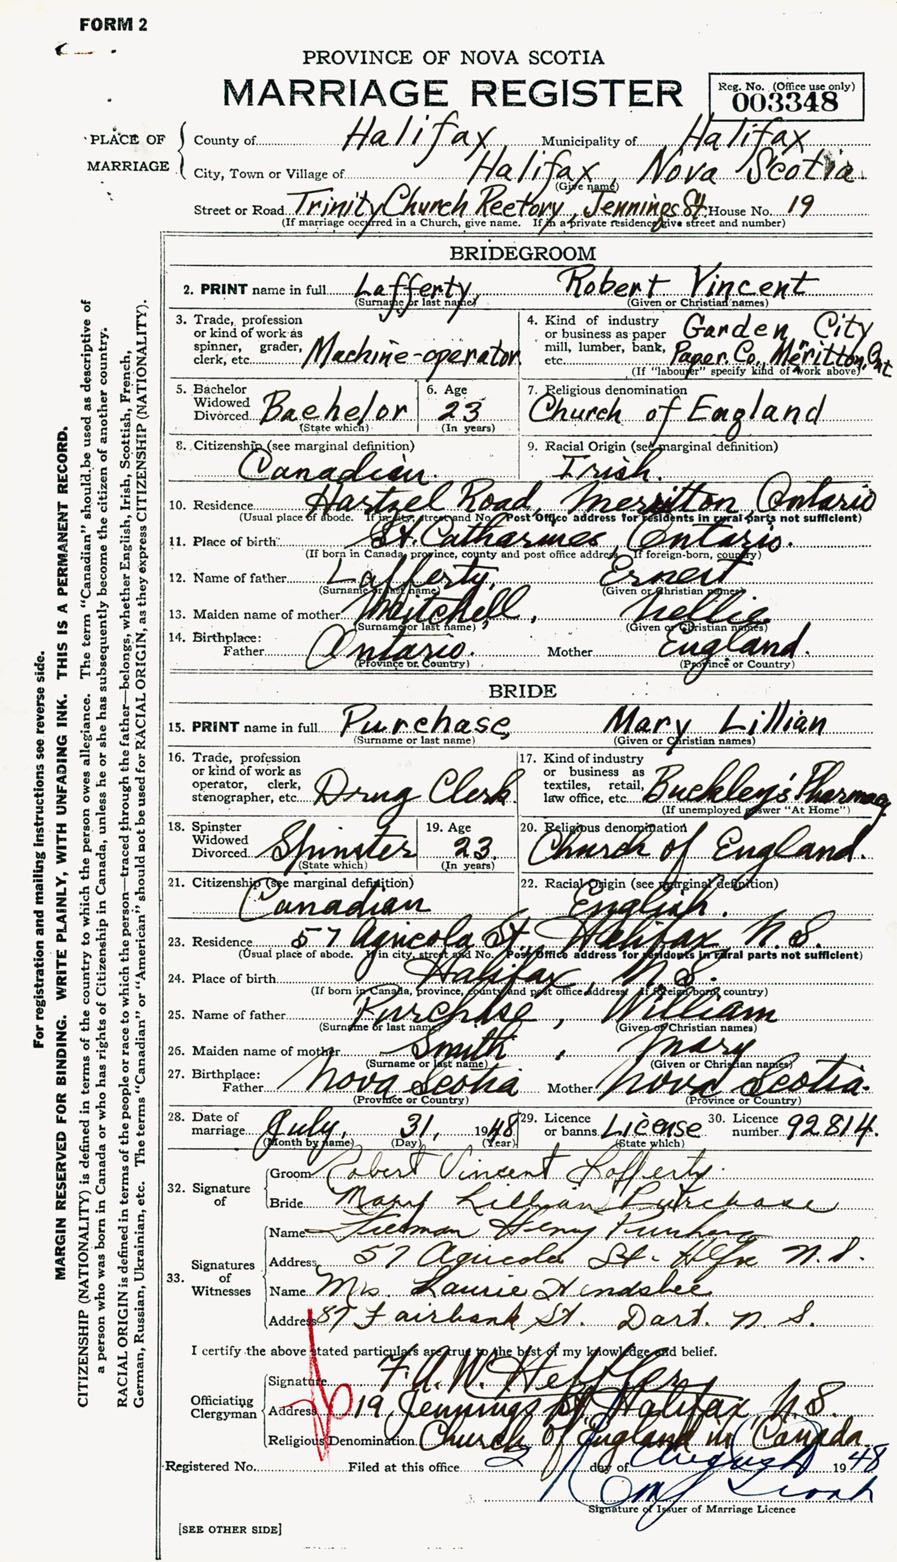 FORM 2
PROVINCE OF NOVA SCOTIA
MARRIAGE REGISTER
Reg. No. (Office use only)
003348
PLACE OF MARRIAGE
County of Halifax Municipality of Halifax
City, Town or Village of Halifax, Nova Scotia
(Give name)
Street or Road Trinity Church Rectory, Jennings St. House No. 19
(If marriage occurred in a Church, give name. If in a private residence give street and number)
BRIDEGROOM
2. PRINT name in full Lafferty, Robert Vincent
(Surname or last name) (Given or Christian names)
3. Trade, profession or kind of work as spinner, grader, clerk, etc. Machine-operator
4. Kind of industry or business as paper mill, lumber, bank, etc. Garden City Paper Co., Merritton, Ont
(If "labourer" specify kind of work above)
5. Bachelor Widowed Divorced Bachelor
(State which)
6. Age 23
(In years)
7. Religious denomination
Church of England
8. Citizenship (see marginal definition)
Canadian.
9. Racial Origin (see marginal definition)
Irish.
10. Residence Hartzel Road, Merritton Ontario
(Usual place of abode. If in city, street and No. Post Office address for residents in rural parts not sufficient)
11. Place of birth St. Catharines Ontario.
(If born in Canada, province, county and post office address. If foreign-born, country)
12. Name of father Lafferty, Ernest
(Surname or last name) (Given or Christian names)
13. Maiden name of mother Mitchell, Nellie
(Surname or last name) (Given or Christian names)
14. Birthplace:
Father Ontario. Mother England.
(Province or Country) (Province or Country)
BRIDE
15. PRINT name in full Purchase, Mary Lillian
(Surname or last name) (Given or Christian names)
16. Trade, profession or kind of work as operator, clerk, stenographer, etc. Drug Clerk
17. Kind of industry or business as textiles, retail, law office, etc. Buckley's Pharmacy
(If unemployed answer "At Home")
18. Spinster Widowed Divorced Spinster
(State which)
19. Age 23
(In years)
20. Religious denomination
Church of England.
21. Citizenship (see marginal definition)
Canadian
22. Racial Origin (see marginal definition)
English.
23. Residence 57 Agricola St. Halifax N.S.
(Usual place of abode. If in city, street and No. Post Office address for residents in rural parts not sufficient)
24. Place of birth Halifax, N.S.
(If born in Canada, province, county and post office address. If foreign-born, country)
25. Name of father Purchase, William
(Surname or last name) (Given or Christian names)
26. Maiden name of mother Smith, Mary
(Surname or last name) (Given or Christian names)
27. Birthplace:
Father Nova Scotia Mother Nova Scotia.
(Province or Country) (Province or Country)
28. Date of marriage July, 31, 1948
(Month by name) (Day) (Year)
29. Licence or banns License
(State which)
30. Licence number 92814.
32. Signature of
Groom Robert Vincent Lafferty.
Bride Mary Lillian Purchase
33. Signatures of Witnesses
Name Henry
Address 57 Agricola St. Hlfx N.S.
Name Mrs. Laurie
Address 87 Fairbank St. Dart. N.S.
I certify the above stated particulars are true to the best of my knowledge and belief.
Officiating Clergyman
Signature F.A.W. Heffler
Address 19 Jennings St. Halifax N.S.
Religious Denomination Church of England in Canada
Registered No. Filed at this office 2 day of August 1948
Signature of Issuer of Marriage Licence
[SEE OTHER SIDE]
For registration and mailing instructions see reverse side.
MARGIN RESERVED FOR BINDING. WRITE PLAINLY, WITH UNFADING INK. THIS IS A PERMANENT RECORD.
CITIZENSHIP (NATIONALITY) is defined in terms of the country to which the person owes allegiance. The term "Canadian" should be used as descriptive of
a person who was born in Canada or who has rights of Citizenship in Canada, unless he or she has subsequently become the citizen of another country.
RACIAL ORIGIN is defined in terms of the people or race to which the person—traced through the father—belongs, whether English, Irish, Scottish, French,
German, Russian, Ukrainian, etc. The terms "Canadian" or "American" should not be used for RACIAL ORIGIN, as they express CITIZENSHIP (NATIONALITY).